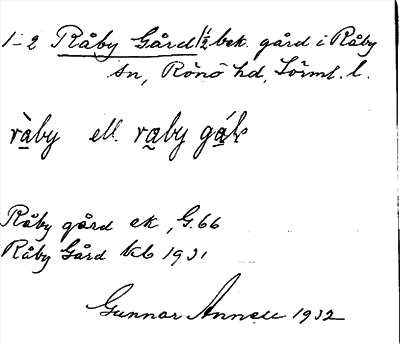 1-2 Råby Gård ½ bek. gård i Råby
sn, Rönö hd, Sörml. l.
ràby ell. råby
Råby gård ek, G. 66
Råby Gård kb 1931
Gunnar Annell 1932